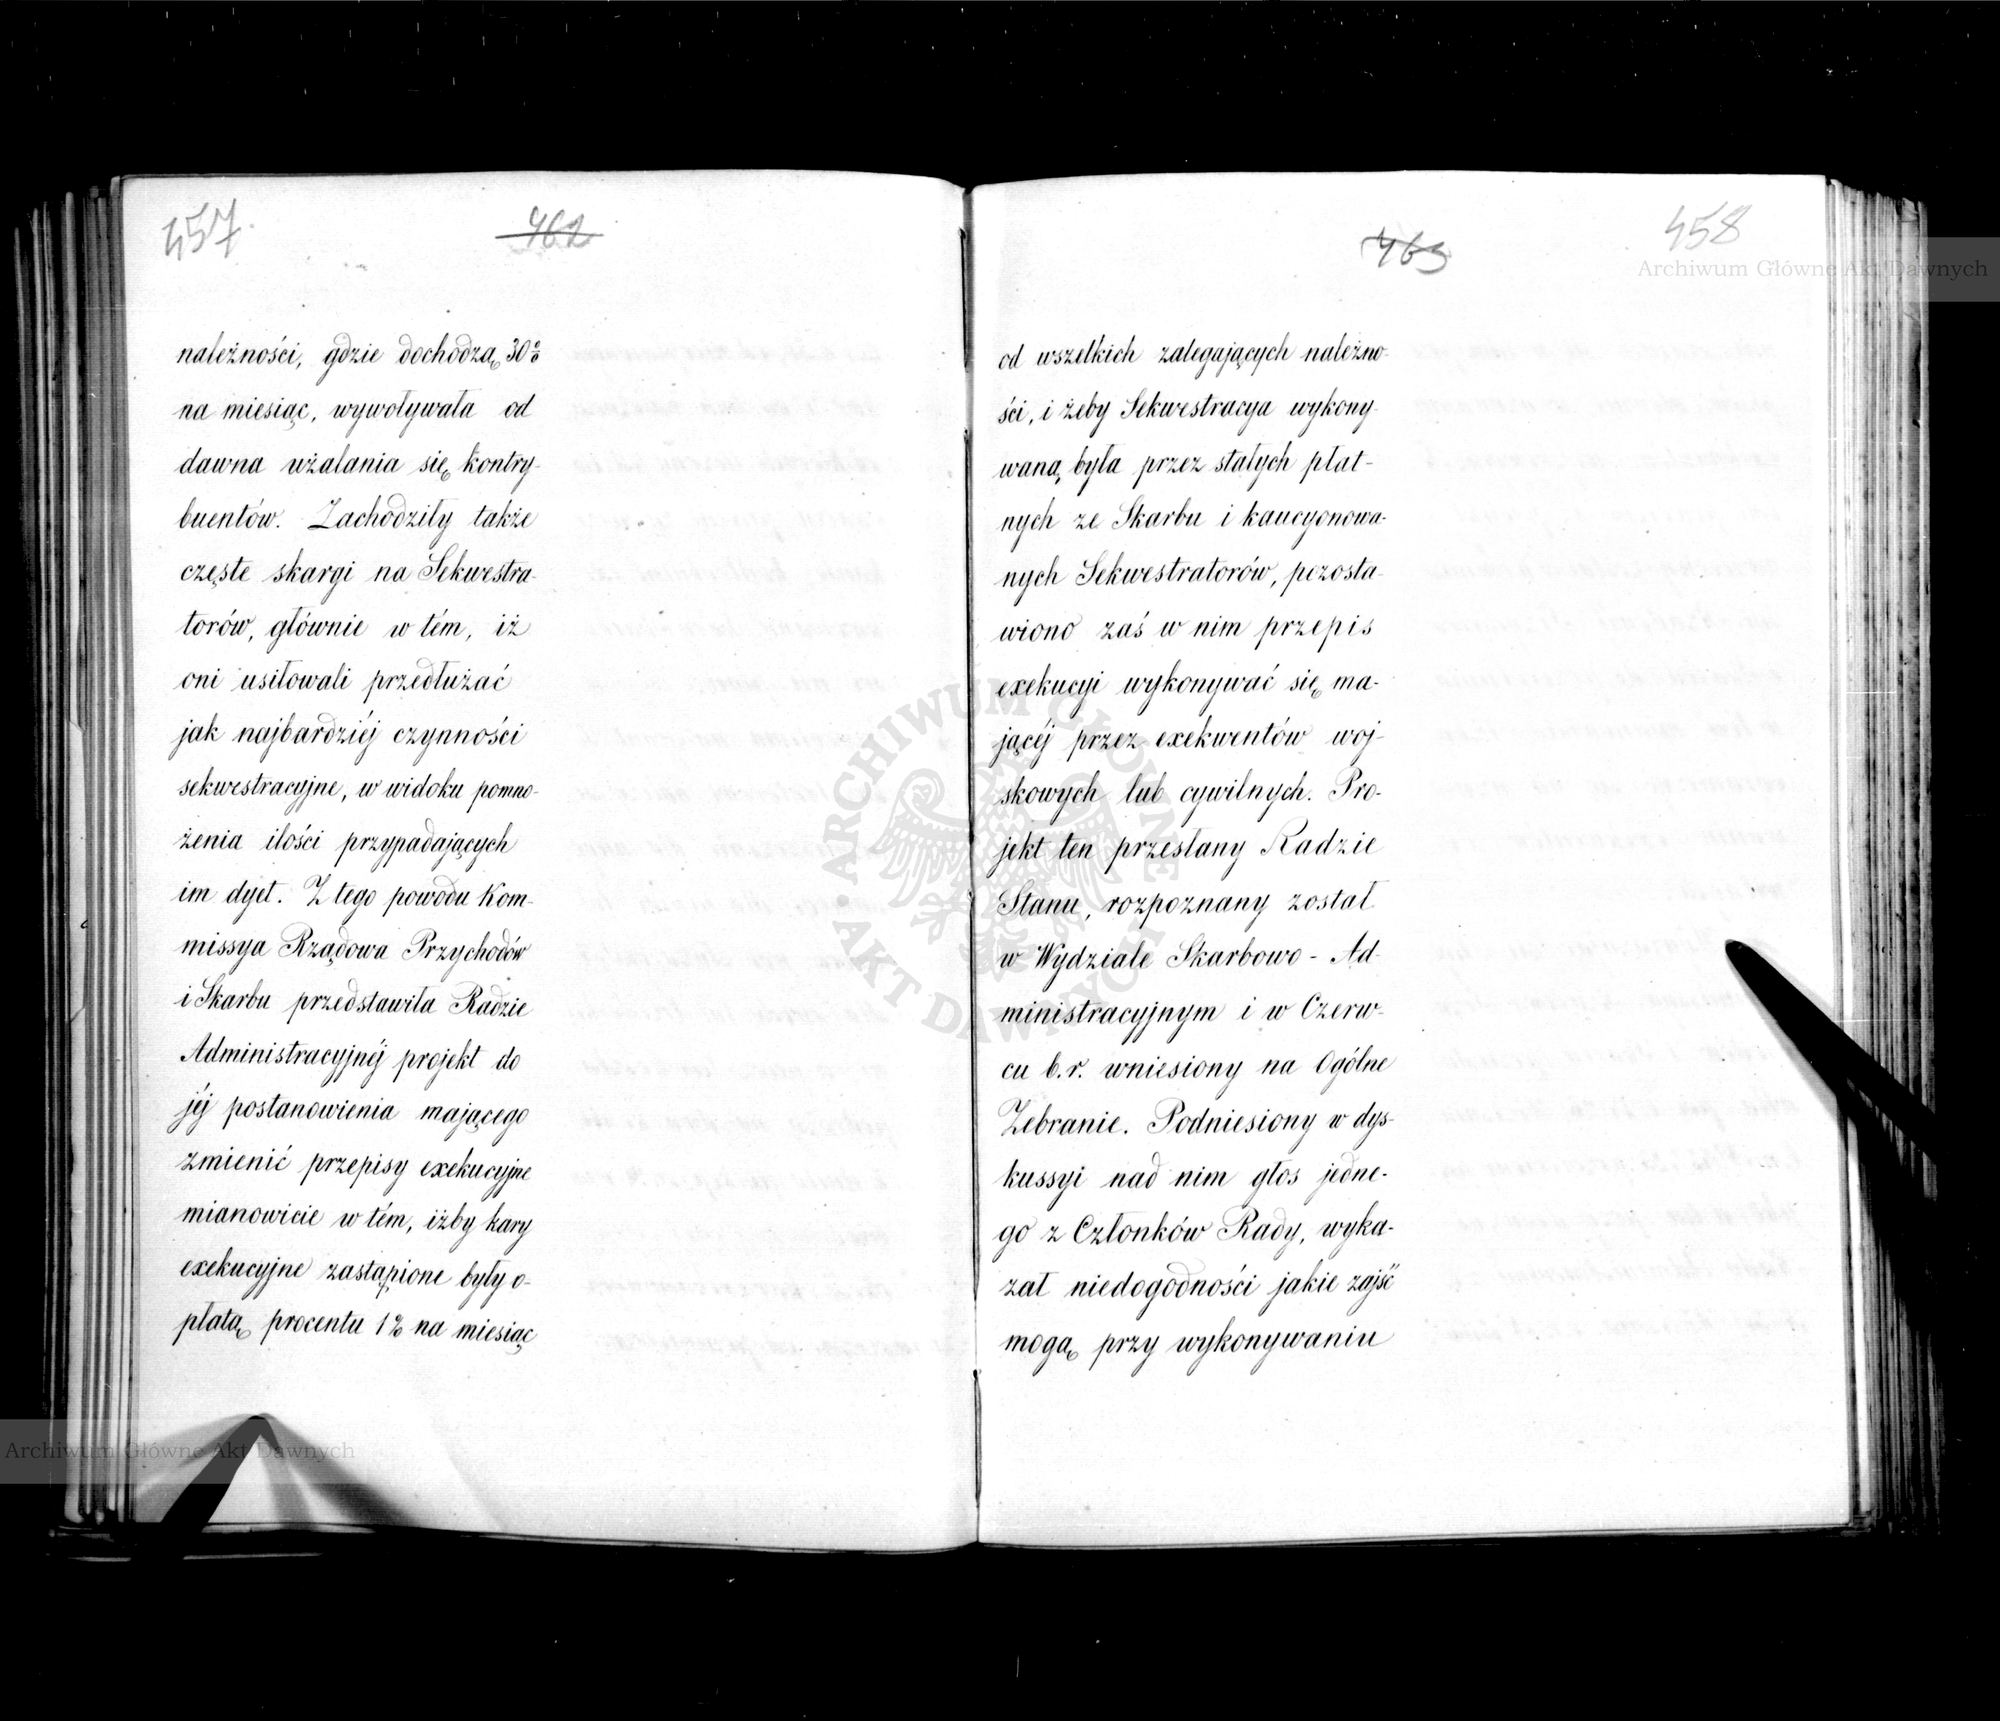 457.
462
należności, gdzie dochodzą 30%
na miesiąc, wywoływała od
dawna użalania się kontry-
buentów. Zachodziły także
częste skargi na Sekwestra-
torów, głównie w tém, iż
oni usiłowali przedłużać
jak najbardziéj czynności
sekwestracyjne, w widoku pomno-
żenia ilości przypadających
im dyet. Z tego powodu Kom-
missya Rządowa Przychodów
i Skarbu przedstawiła Radzie
Administracyjnéj projekt do
jéj postanowienia mającego
zmienić przepisy exekucyjne
mianowicie w tém, iżby kary
exekucyjne zastąpione były o-
płatą procentu 1% na miesiąc
463
458
od wszelkich zalegających należno-
ści, i żeby Sekwestracya wykony-
waną była przez stałych płat-
nych ze Skarbu i kaucyonowa-
nych Sekwestratorów, pozosta-
wiono zaś w nim przepis
exekucyi wykonywać się ma-
jącéj przez exekwentów woj-
skowych lub cywilnych. Pro-
jekt ten przesłany Radzie
Stanu, rozpoznany został
w Wydziale Skarbowo-Ad-
ministracyjnym i w Czerw-
cu b.r. wniesiony na Ogólne
Zebranie. Podniesiony w dys-
kussyi nad nim głos jedne-
go z Członków Rady, wyka-
zał niedogodności jakie zajść
mogą przy wykonywaniu
Archiwum Główne Akt Dawnych
Archiwum Główne Akt Dawnych
ARCHIWUM GŁÓWNE AKT DAWNYCH